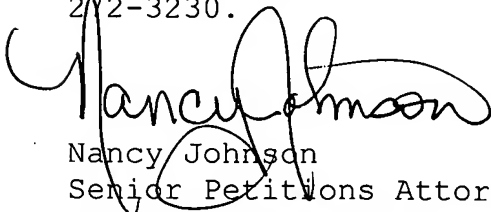 272-3230.
Nancy Johnson
Nancy Johnson
Senior Petitions Attor